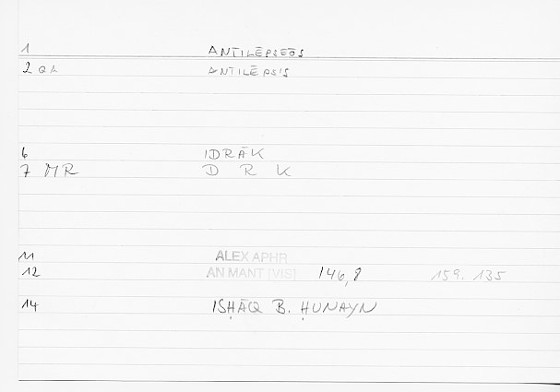 1 ANTILĒPSEŌS
2 GA ANTILĒPSIS
6 IDRĀK
7 MR D R K
11 ALEX APHR
12 AN MANT [VIS] 146,8 159.135
14 ISḤĀQ B. ḤUNAYN